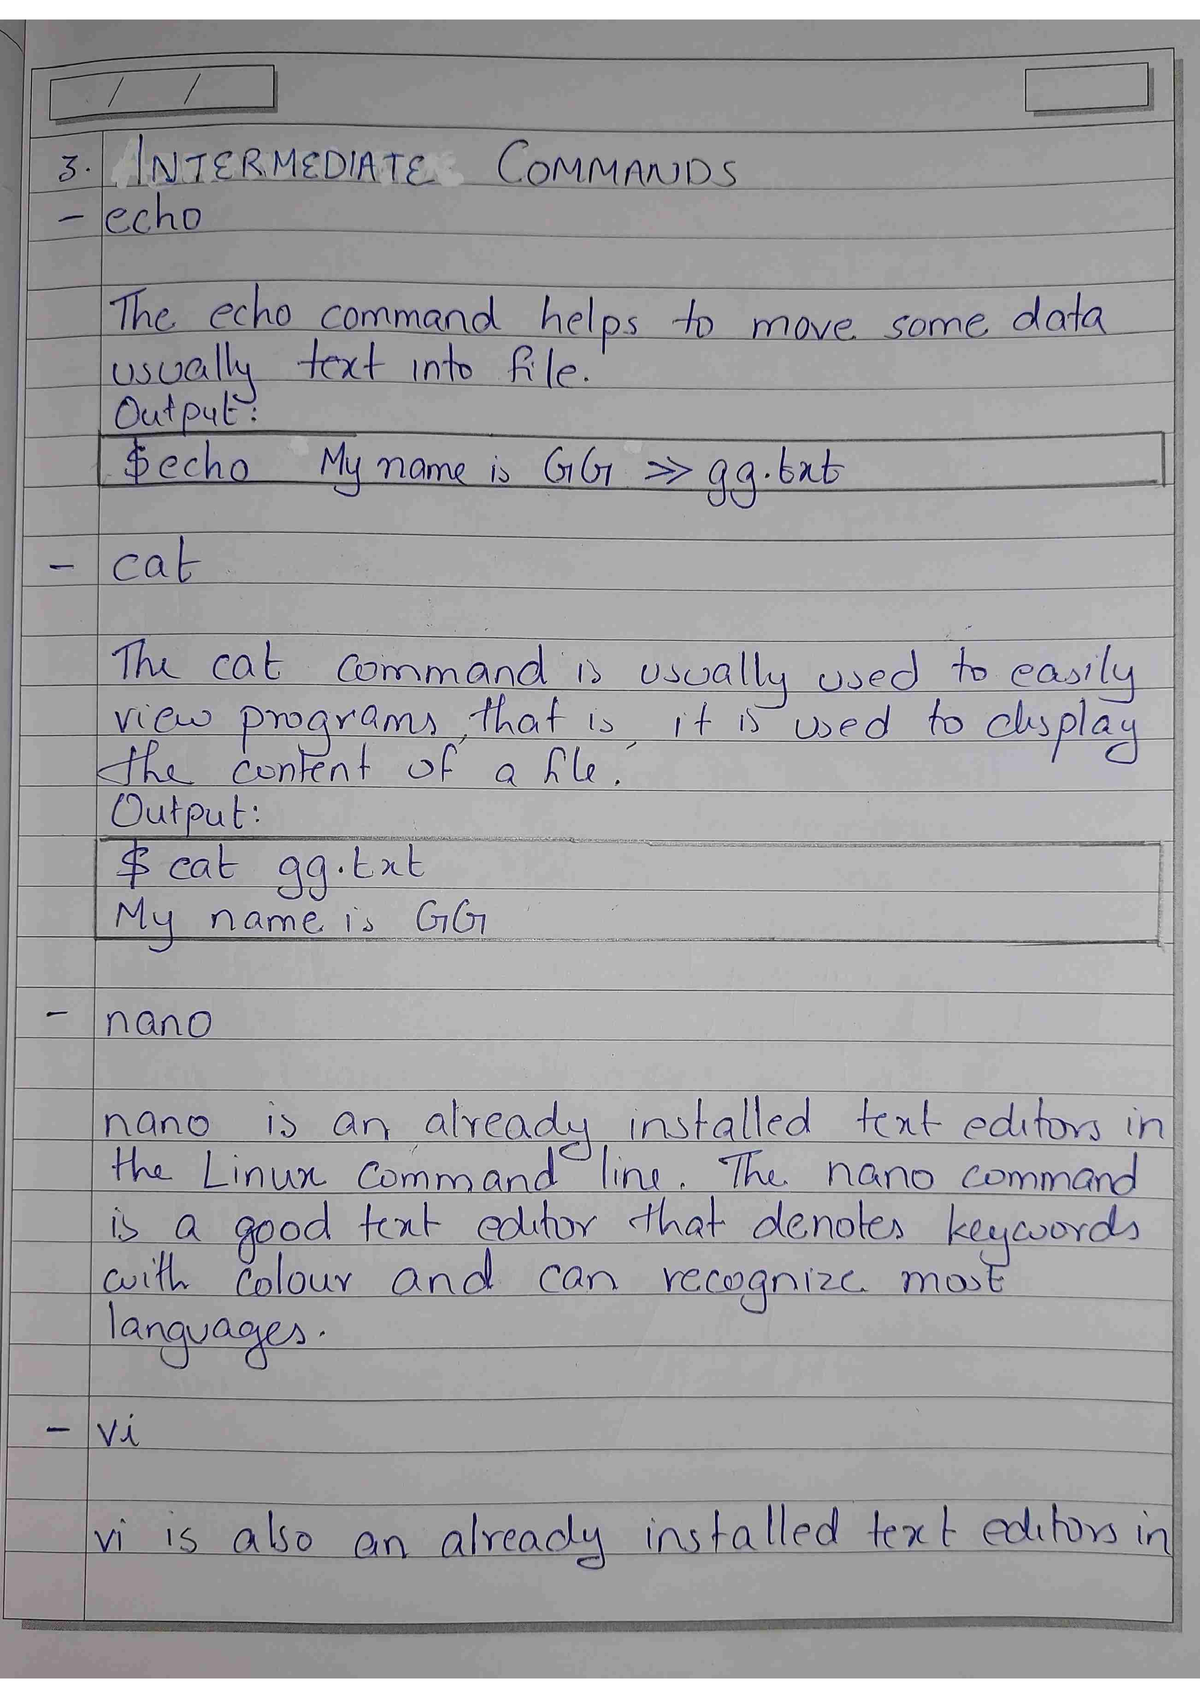 / /
3. INTERMEDIATE COMMANDS
- echo
The echo command helps to move some data
usually text into file.
Output:
$echo My name is GG >> gg.txt
- cat
The cat command is usually used to easily
view programs, that is, it is used to display
the content of a file.
Output:
$ cat gg.txt
My name is GG
- nano
nano is an already installed text editors in
the Linux command line. The nano command
is a good text editor that denotes keywords
with colour and can recognize most
languages.
- vi
vi is also an already installed text editors in